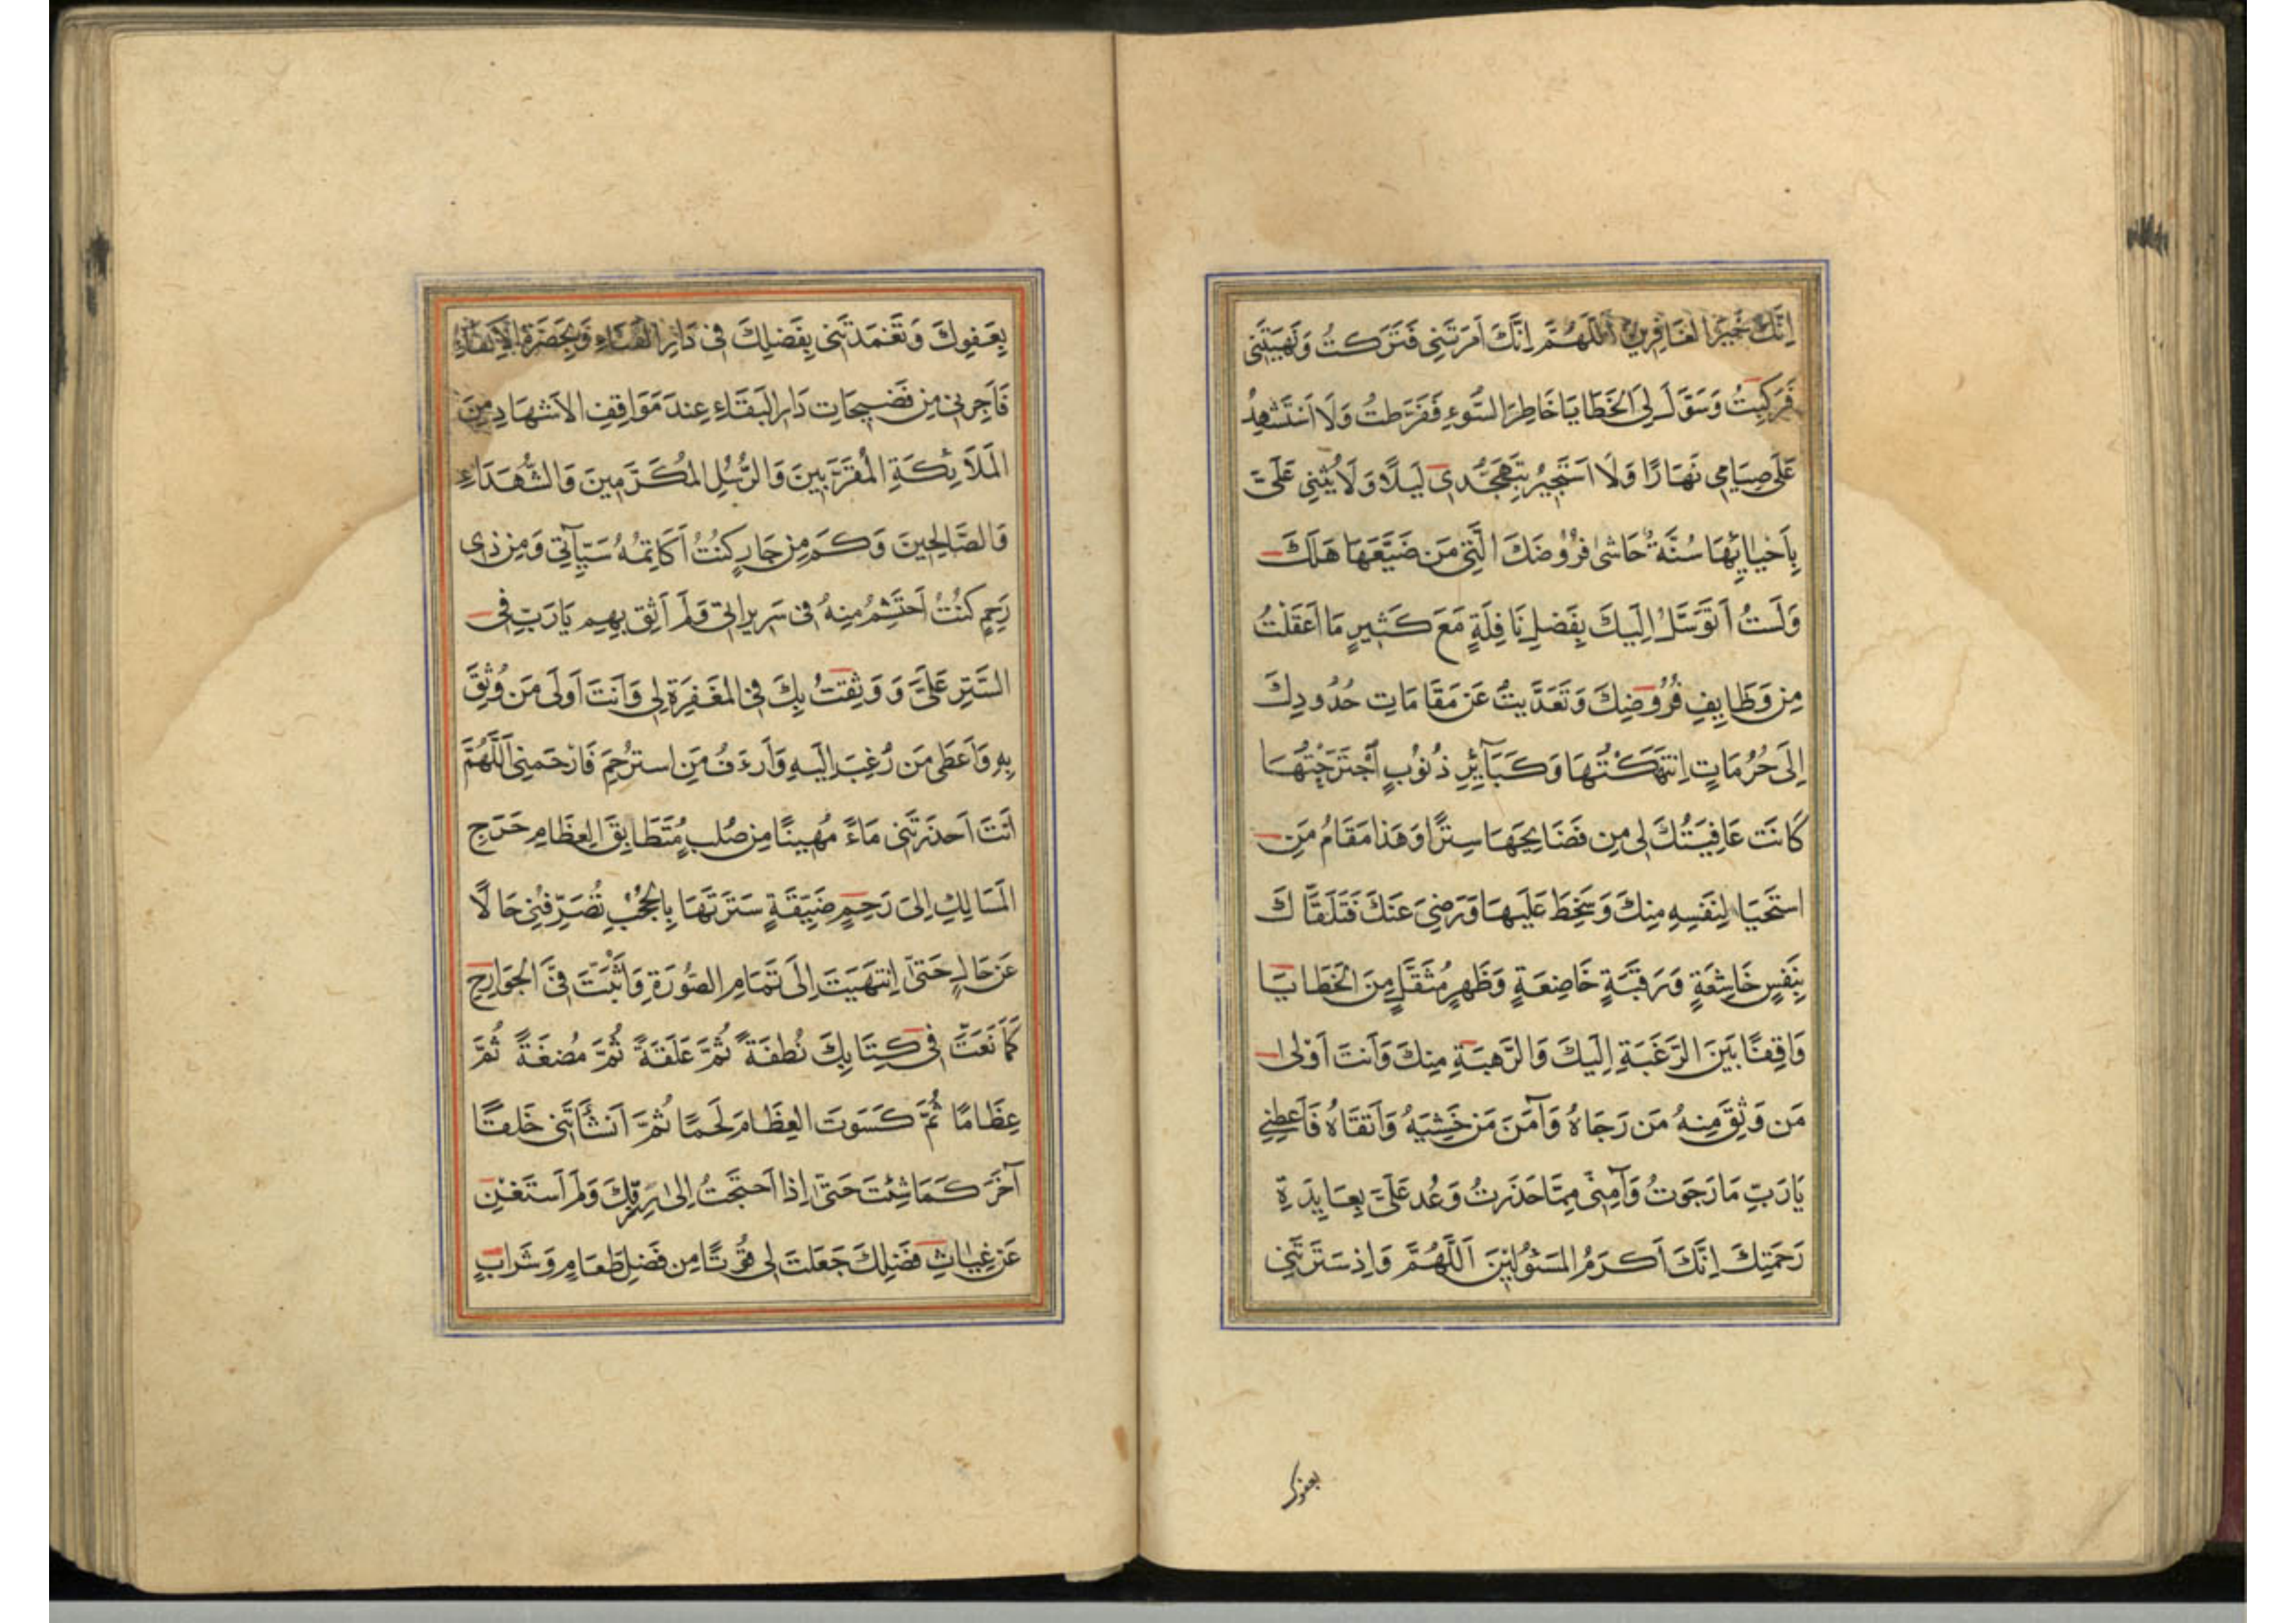 اِنَّكَ خَيْرُ الغَافِرِينَ اَللّٰهُمَّ اِنَّكَ اَمَرْتَنِى فَتَرَكتُ وَنَهَيتَنِى
فَرَكِبتُ وَسَوَّلَ لِىَ الخَطَايَا خَاطِرُ السُّوءِ فَفَرَّطتُ وَلَا اَستَشهِدُ
عَلَى صِيَامِى نَهَارًا وَلَا اَستَجِيرُ بِتَهَجُّدِى لَيلًا وَلَا يُثنِى عَلَىَّ
بِاَحيَائِهَا سُنَّةٌ حَاشى فُرُوضَكَ الَّتِى مَن ضَيَّعَهَا هَلَكَ
وَلَستُ اَتَوَسَّلُ اِلَيكَ بِفَضلِ نَافِلَةٍ مَعَ كَثِيرٍ مَا اَغفَلتُ
مِن وَظَايِفِ فُرُوضِكَ وَتَعَدَّيتُ عَن مَقَامَاتِ حُدُودِكَ
اِلَى حُرُمَاتٍ اِنتَهَكتُهَا وَكَبَآئِرِ ذُنُوبٍ اَجتَرَحتُهَا
كَانَت عَافِيَتُكَ لِى مِن فَضَايِحَهَا سِترًا وَهَذا مَقَامُ مَنِ
استَحيَا لِنَفسِهِ مِنكَ وَسَخِطَ عَلَيهَا وَرَضِىَ عَنكَ فَتَلَقَّاكَ
بِنَفسٍ خَاشِعَةٍ وَرَقَبَةٍ خَاضِعَةٍ وَظَهرٍ مُثقَلٍ مِنَ الخَطَايَا
وَاقِفًا بَينَ الرَّغبَةِ اِلَيكَ وَالرَّهبَةِ مِنكَ وَاَنتَ اَولى
مَن وَثِقَ مِنهُ مَن رَجَاهُ وَآمَنَ مَن خَشِيَهُ وَاَتقَاهُ فَاَعطِنِى
يَارَبِّ مَا رَجَوتُ وَآمِنِّى مِمَّا حَذَرتُ وَعُد عَلَىَّ بِعَايِدَةِ
رَحمَتِكَ اِنَّكَ اَكرَمُ المَسئُولِينَ اَللّٰهُمَّ وَاِذ سَتَرتَنِى
بعفوك
بِعَفوِكَ وَتَغَمَدتَنِى بِفَضلِكَ فِى دَارِ الفَنَاءِ وَبِحَضرَةِ الاَكفَاءِ
فَاَجِرنِى مِن فَضِيحَاتِ دَارِ البَقَاءِ عِندَ مَوَاقِفِ الاَشهَادِ مِنَ
المَلَائِكَةِ المُقَرَّبِينَ وَالرُّسُلِ المُكَرَّمِينَ وَالشُّهَدَاءِ
وَالصَّالِحِينَ وَكَم مِن جَارٍ كُنتُ اُكَاتِمُهُ سَيِّآتِى وَمِن ذِى
رَحِمٍ كُنتُ اَحتَشِمُ مِنهُ فِى سَرِيرَاتِى وَلَم اَثِق بِهِم يَارَبِّ فِى
السَّترِ عَلَىَّ وَوَثِقتُ بِكَ فِى المَغفِرَةِ لِى وَاَنتَ اَولَى مَن وُثِقَ
بِهِ وَاَعطَى مَن رُغِبَ اِلَيهِ وَاَرءَفُ مَنِ استُرحِمَ فَارحَمنِى اَللّٰهُمَّ
اَنتَ اَحدَرتَنِى مَاءً مُهِينًا مِن صُلبٍ مُتَطَابِقِ العِظَامِ حَرِجِ
المَسَالِكِ اِلَى رَحِمٍ ضَيِّقَةٍ سَتَرتَهَا بِالحُجُبِ تُصَرِّفُنِى حَالًا
عَن حَالٍ حَتَى اِنتَهَيتَ اِلَى تَمَامِ الصُّورَةِ وَاَثبَتَّ فِىَّ الجَوَارِحِ
كَمَا نَعَتَّ فِى كِتَابِكَ نُطفَةً ثُمَّ عَلَقَةً ثُمَّ مُضغَةً ثُمَّ
عِظَامًا ثُمَّ كَسَوتَ العِظَامَ لَحمًا ثُمَّ اَنشَأتَنِى خَلقًا
آخَرَ كَمَا شِئتَ حَتَى اِذا اَحتَجتُ اِلى رِزقِكَ وَلَم اَستَغنِ
عَن غِيَاثِ فَضلِكَ جَعَلتَ لِى قُوتًا مِن فَضلِ طَعَامٍ وَشَرابٍ